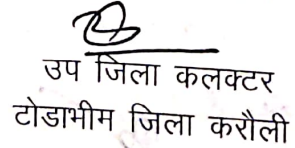 उप जिला कलक्टर
टोडाभीम जिला करौली